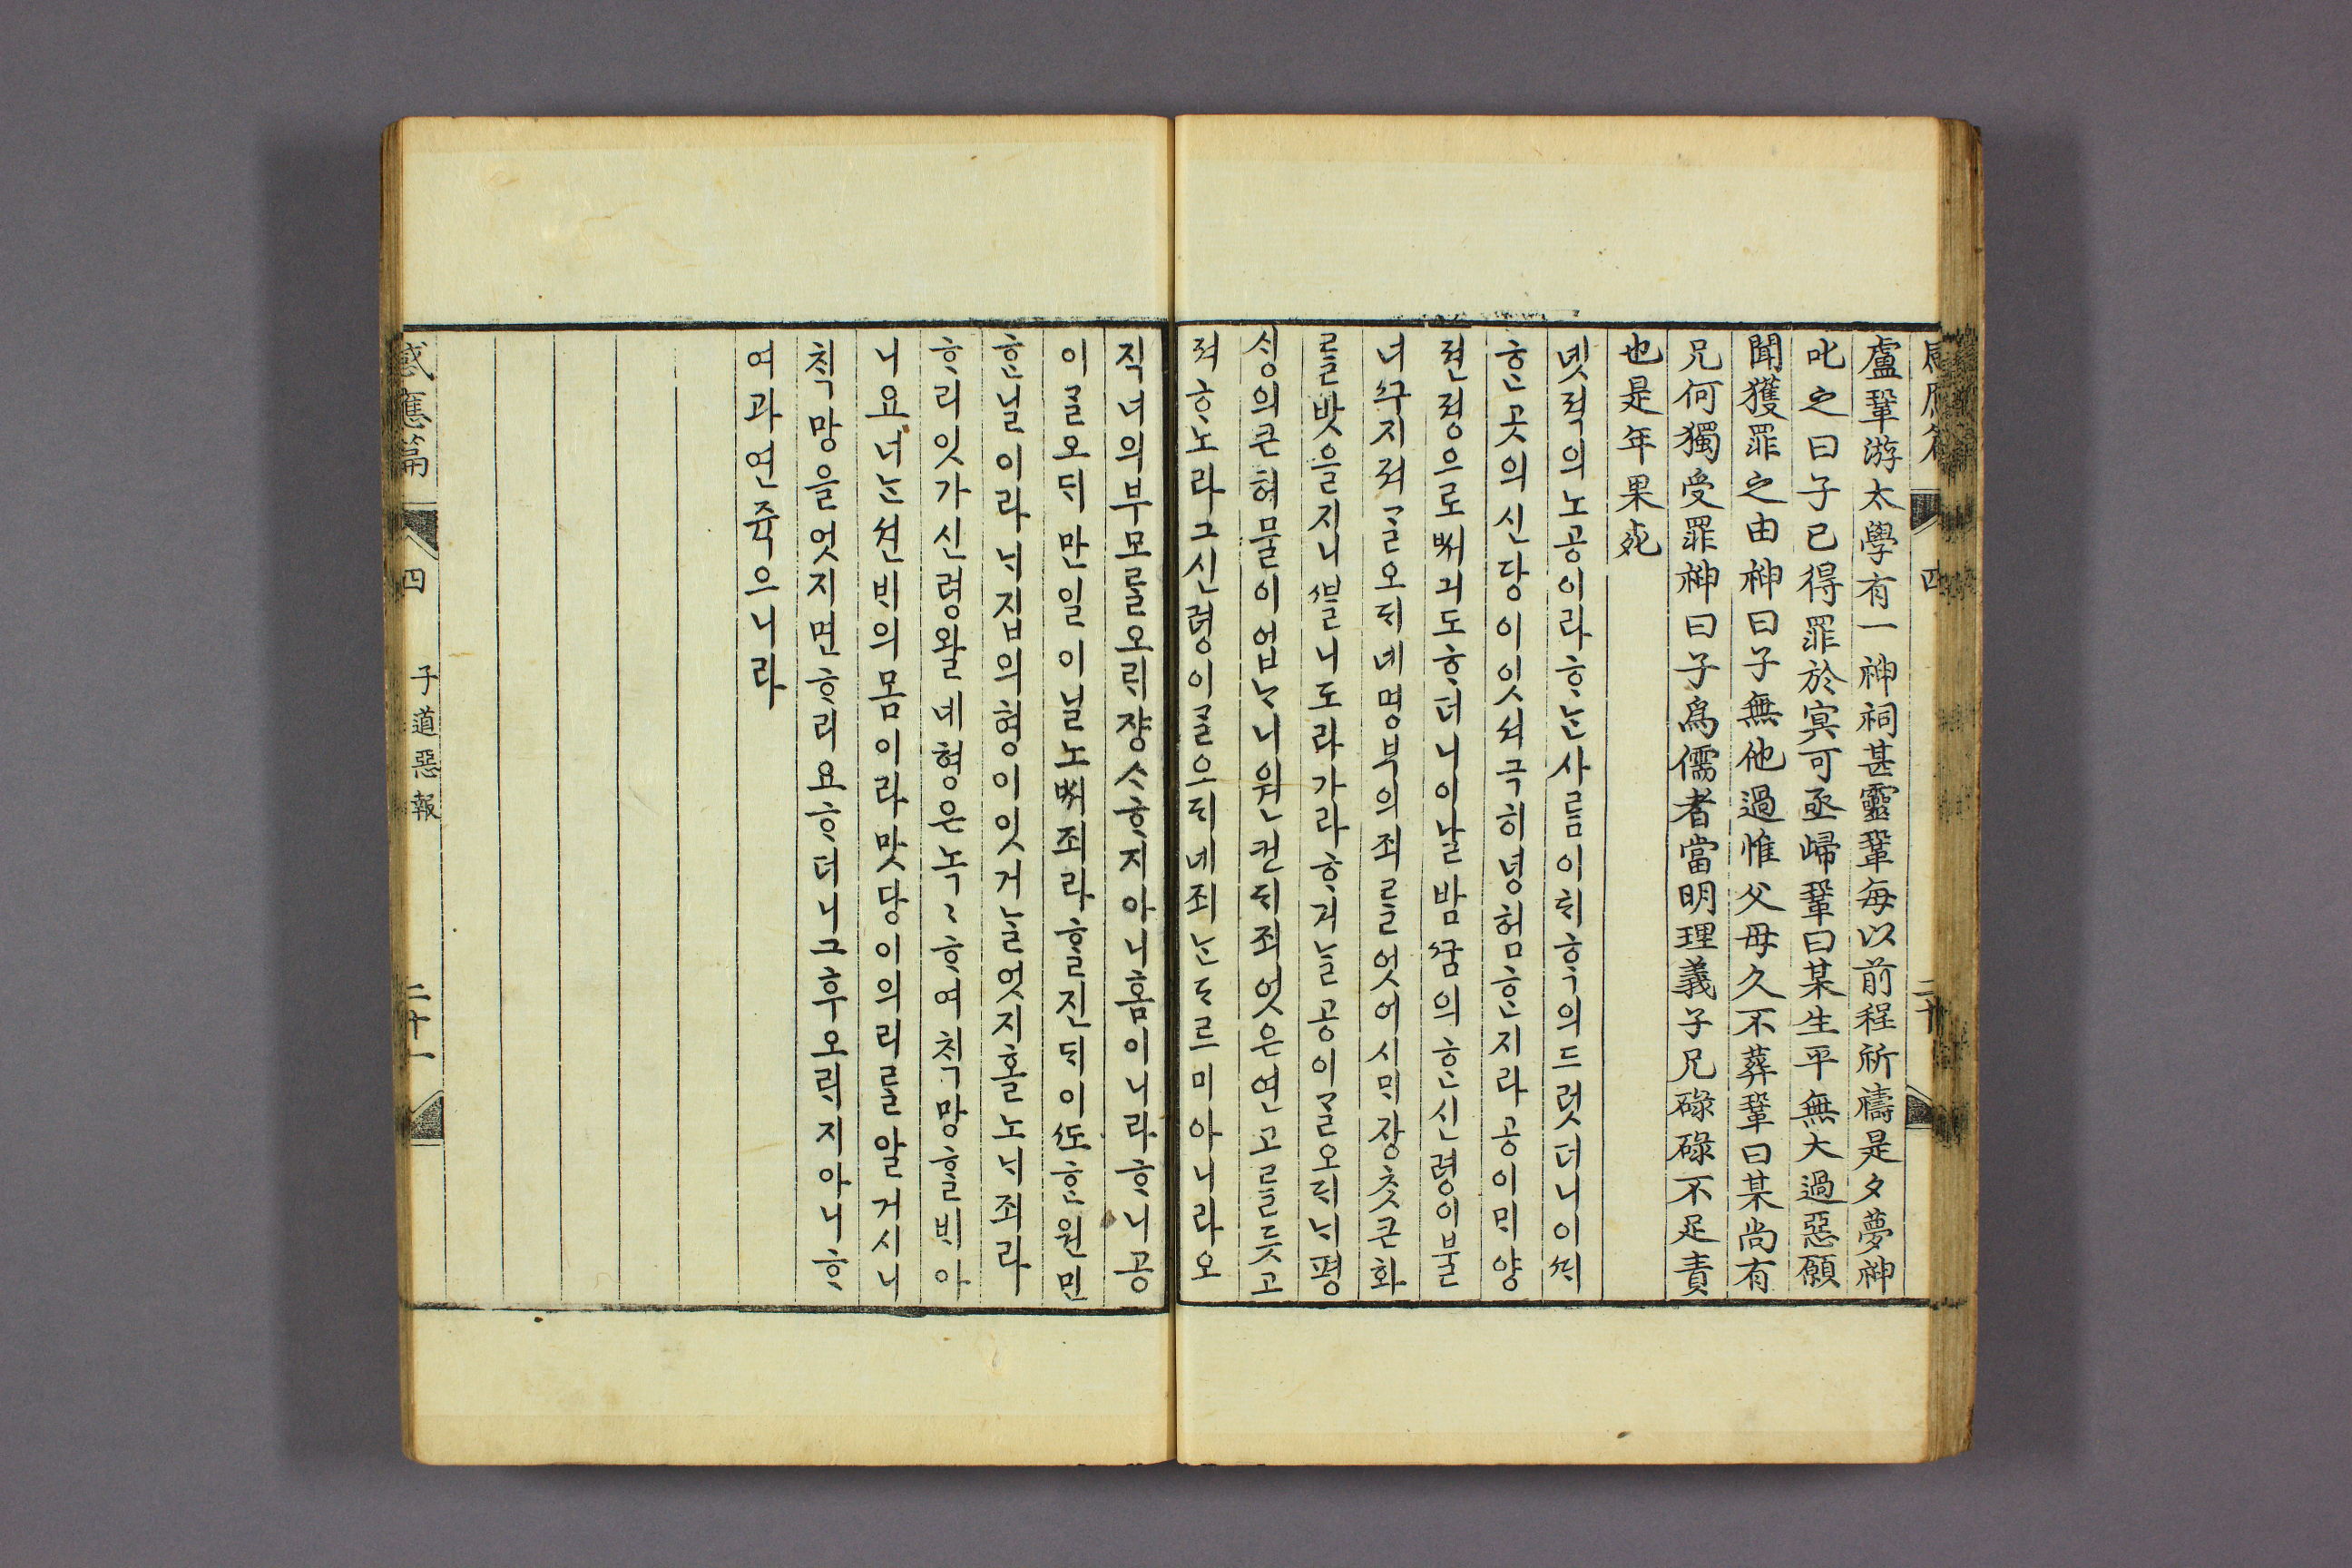 四
盧鞏游太學有一神祠甚靈鞏每以前程祈禱是夕夢神
叱之曰子已得罪於冥可亟歸鞏曰某生平無大過惡願
聞獲罪之由神曰子無他過惟父母久不葬鞏曰某尚有
兄何獨受罪神曰子爲儒者當明理義子兄碌碌不足責
也是年果死
녯적의노공이라ᄒᆞᄂᆞᆫ사ᄅᆞᆷ이ᄐᆡᄒᆞᆨ의드럿더니이ᄯᆡ
ᄒᆞᆫ곳의신당이잇셔극히녕험ᄒᆞᆫ지라공이ᄆᆡ양
젼졍으로ᄡᅥ긔도ᄒᆞ더니이날밤ᄭᅮᆷ의ᄒᆞᆫ신령이불
너ᄭᅮ지져ᄀᆞᆯ오ᄃᆡ네명부의죄ᄅᆞᆯ엇어시ᄆᆡ쟝ᄎᆞᆺ큰화
ᄅᆞᆯ밧을지니ᄲᆞᆯ니도라가라ᄒᆞ거ᄂᆞᆯ공이ᄀᆞᆯ오ᄃᆡᄂᆡ평
ᄉᆡᆼ의큰허물이업ᄂᆞ니원컨ᄃᆡ죄엇은연고ᄅᆞᆯ듯고
져ᄒᆞ노라그신령이ᄀᆞᆯ으ᄃᆡ네죄ᄂᆞᆫᄃᆞ르미아니라오
직너의부모ᄅᆞᆯ오ᄅᆡ쟝ᄉᆞᄒᆞ지아니홈이니라ᄒᆞ니공
이ᄀᆞᆯ오ᄃᆡ만일이닐노ᄡᅥ죄라ᄒᆞᆯ진ᄃᆡ이ᄯᅩᄒᆞᆫ원민
ᄒᆞᆫ닐이라ᄂᆡ집의형이잇거ᄂᆞᆯ엇지홀노ᄂᆡ죄라
ᄒᆞ리잇가신령왈네형은녹〻ᄒᆞ여ᄎᆡᆨ망ᄒᆞᆯᄇᆡ아
니요너ᄂᆞᆫ션ᄇᆡ의몸이라맛당이의리ᄅᆞᆯ알거시니
ᄎᆡᆨ망을엇지면ᄒᆞ리요ᄒᆞ더니그후오ᄅᆡ지아니ᄒᆞ
여과연쥭으니라
感應篇 四 子道惡報 二十一